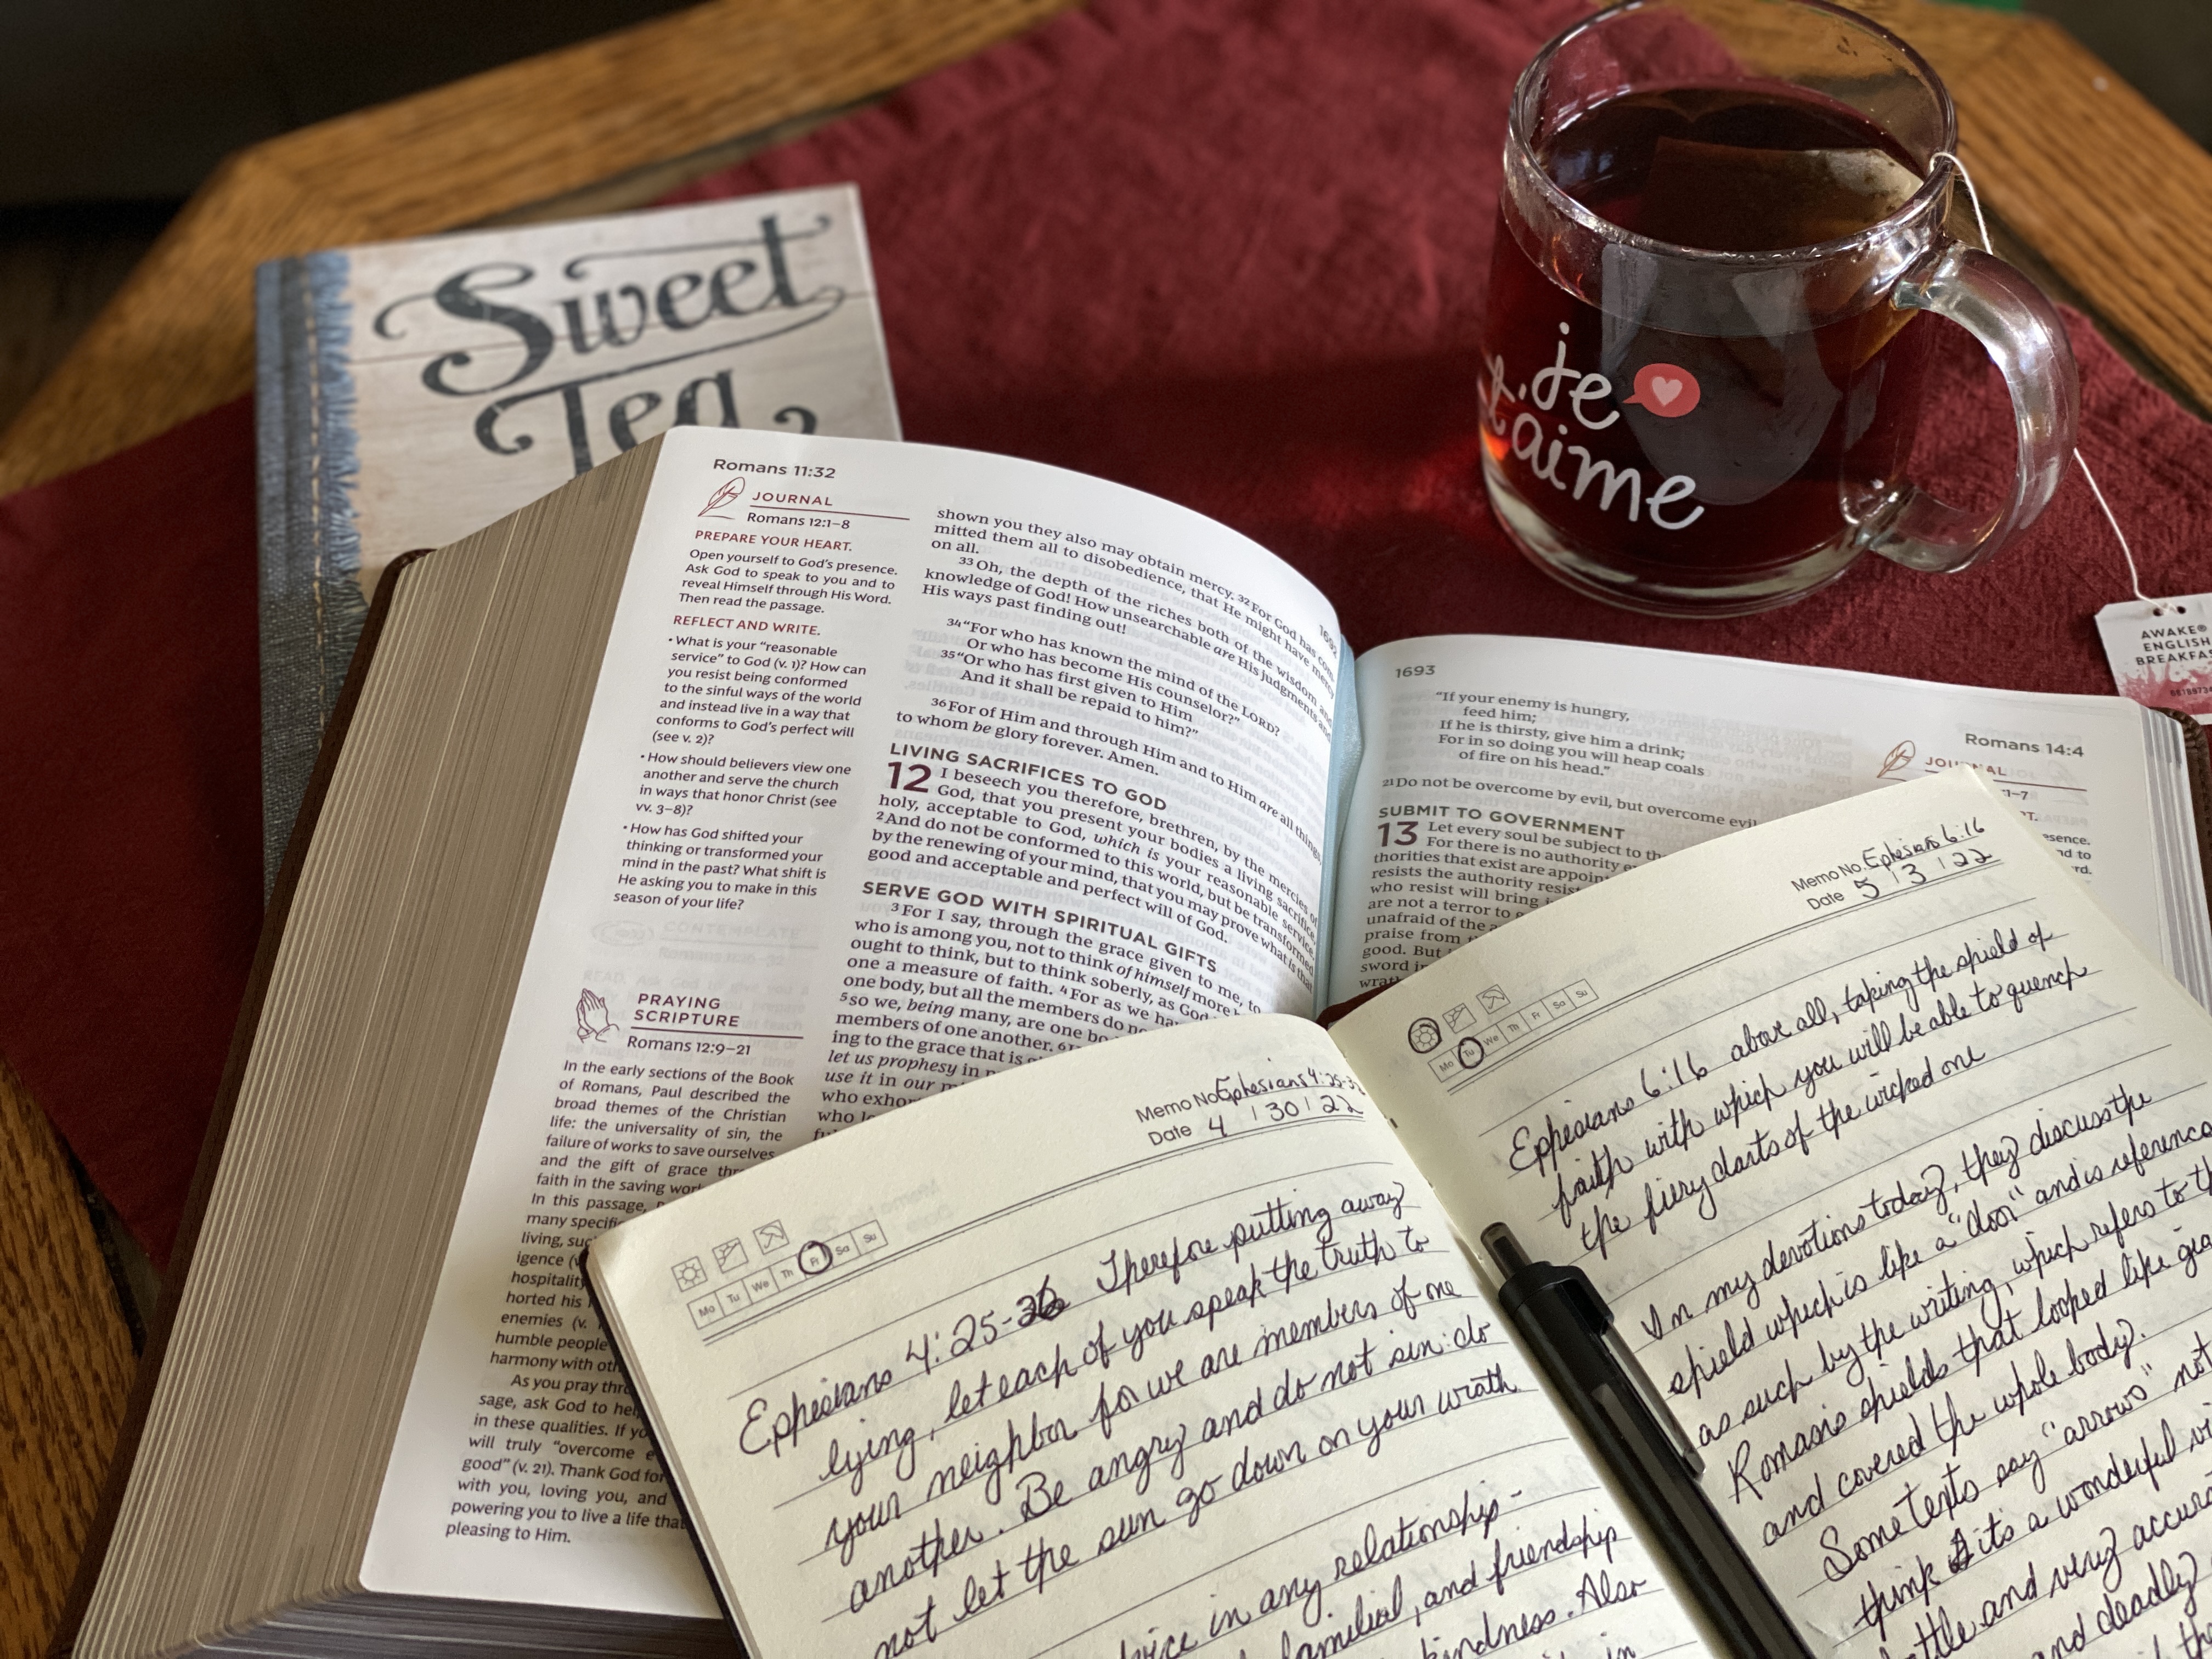 Sweet
Tea
je
t'aime
AWAKE®
ENGLISH
Romans 11:32
JOURNAL
Romans 12:1–8
PREPARE YOUR HEART.
Open yourself to God's presence.
Ask God to speak to you and to
reveal Himself through His Word.
Then read the passage.
REFLECT AND WRITE.
• What is your "reasonable
service" to God (v. 1)? How can
you resist being conformed
to the sinful ways of the world
and instead live in a way that
conforms to God's perfect will
(see v. 2)?
• How should believers view one
another and serve the church
in ways that honor Christ (see
vv. 3–8)?
• How has God shifted your
thinking or transformed your
mind in the past? What shift is
He asking you to make in this
season of your life?
PRAYING
SCRIPTURE
Romans 12:9–21
In the early sections of the Book
of Romans, Paul described the
broad themes of the Christian
life: the universality of sin, the
failure of works to save ourselves,
and the gift of grace
faith in the saving
In this passage,
many
living,
igence
hospitality
horted his
enemies (v.
humble people
harmony with
As you pray
sage, ask God to
in these qualities. If
will truly "overcome
good" (v. 21). Thank God for
with you, loving you, and
powering you to live a life that
pleasing to Him.
1692
shown you they also may obtain mercy. 32 For God has
mitted them all to disobedience, that He might have mercy
on all.
33 Oh, the depth of the riches both of the wisdom and
knowledge of God! How unsearchable are His judgments and
His ways past finding out!
34 "For who has known the mind of the LORD?
Or who has become His counselor?"
35 "Or who has first given to Him
And it shall be repaid to him?"
36 For of Him and through Him and to Him are all things,
to whom be glory forever. Amen.
LIVING SACRIFICES TO GOD
12 I beseech you therefore, brethren, by the mercies of
God, that you present your bodies a living sacrifice,
holy, acceptable to God, which is your reasonable service.
2 And do not be conformed to this world, but be transformed
by the renewing of your mind, that you may prove what is that
good and acceptable and perfect will of God.
SERVE GOD WITH SPIRITUAL GIFTS
3 For I say, through the grace given to me, to
who is among you, not to think of himself more
ought to think, but to think soberly, as God
one a measure of faith. 4 For as we
one body, but all the members do
5 so we, being many, are one
members of one another. 6
ing to the grace that is
let us prophesy in
use it in our
who
who
1693
"If your enemy is hungry,
feed him;
If he is thirsty, give him a drink;
For in so doing you will heap coals
of fire on his head."
21 Do not be overcome by evil, but overcome evil
SUBMIT TO GOVERNMENT
13 Let every soul be subject to
For there is no authority
thorities that exist are
resists the authority
who resist will bring
are not a terror to
unafraid of the
praise from
good. But
sword
Romans 14:4
JOURNAL
Memo No. Ephesians 4:25-
Date 4 30 22
Mo Tu We Th Fr Sa Su
Ephesians 4:25- Therefore putting away
lying, let each of you speak the truth to
your neighbor for we are members of one
another. Be angry and do not sin: do
not let the sun go down on your wrath
in any relationship -
familial, and friendship
kindness. Also
in
Memo No. Ephesians 6:16
Date 5 3 22
Mo Tu We Th Fr Sa Su
Ephesians 6:16 above all, taking the shield of
faith with which you will be able to quench
the fiery darts of the wicked one
In my devotions today, they discuss the
shield which is like a "door" and is
as such by the writing, which refers to
Romans shields that looked like
and covered the whole body.
Some texts say "arrows" not
think its a wonderful
and very
and deadly